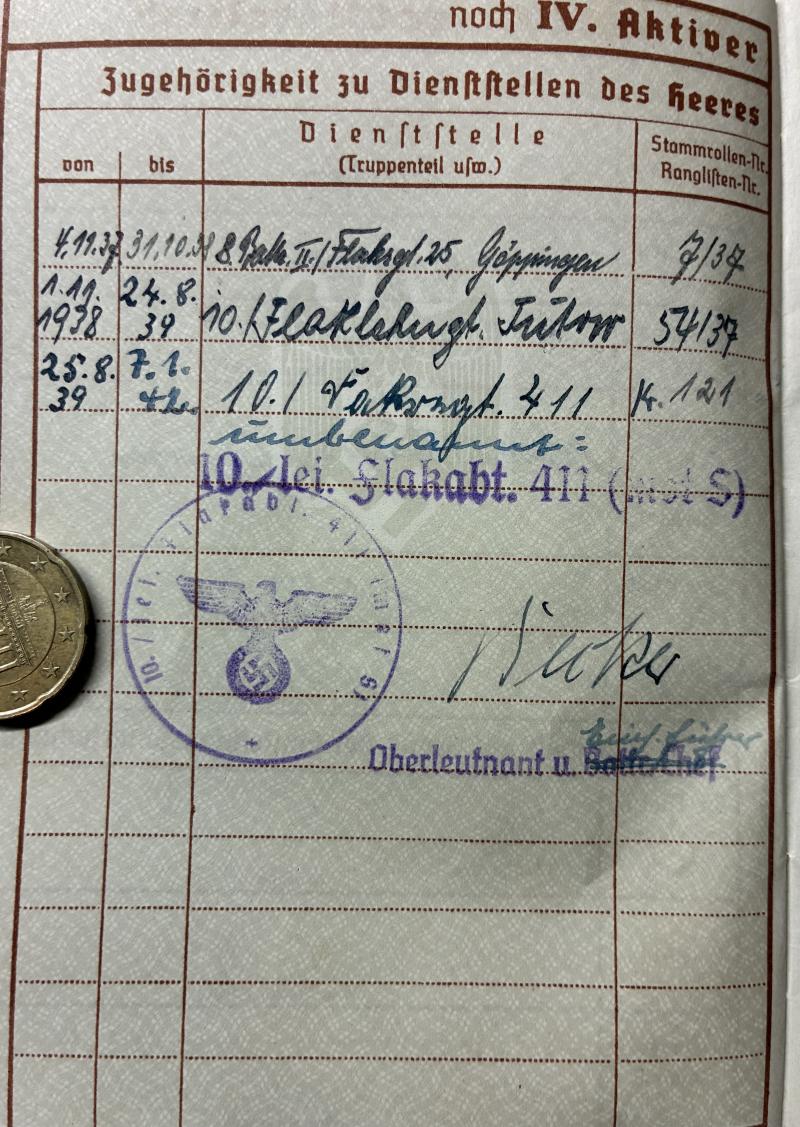 noch IV. Aktiver
Zugehörigkeit zu Dienststellen des Heeres
von bis Dienststelle (Truppenteil usw.) Stammrollen-Nr. Ranglisten-Nr.
4.11.37 31.10.38 8. Battr. II./Flakrgt. 25, Göppingen 7/37
1.11. 1938 24.8. 39 10./Flaklehrrgt. Tutow 54/37
25.8. 39 7.1. 42. 10./ Flakregt. 411 Kr. 121
umbenannt:
10./lei. Flakabt. 411 (mot S)
10./lei. Flakabt. 411 (mot S)
Oberleutnant u.